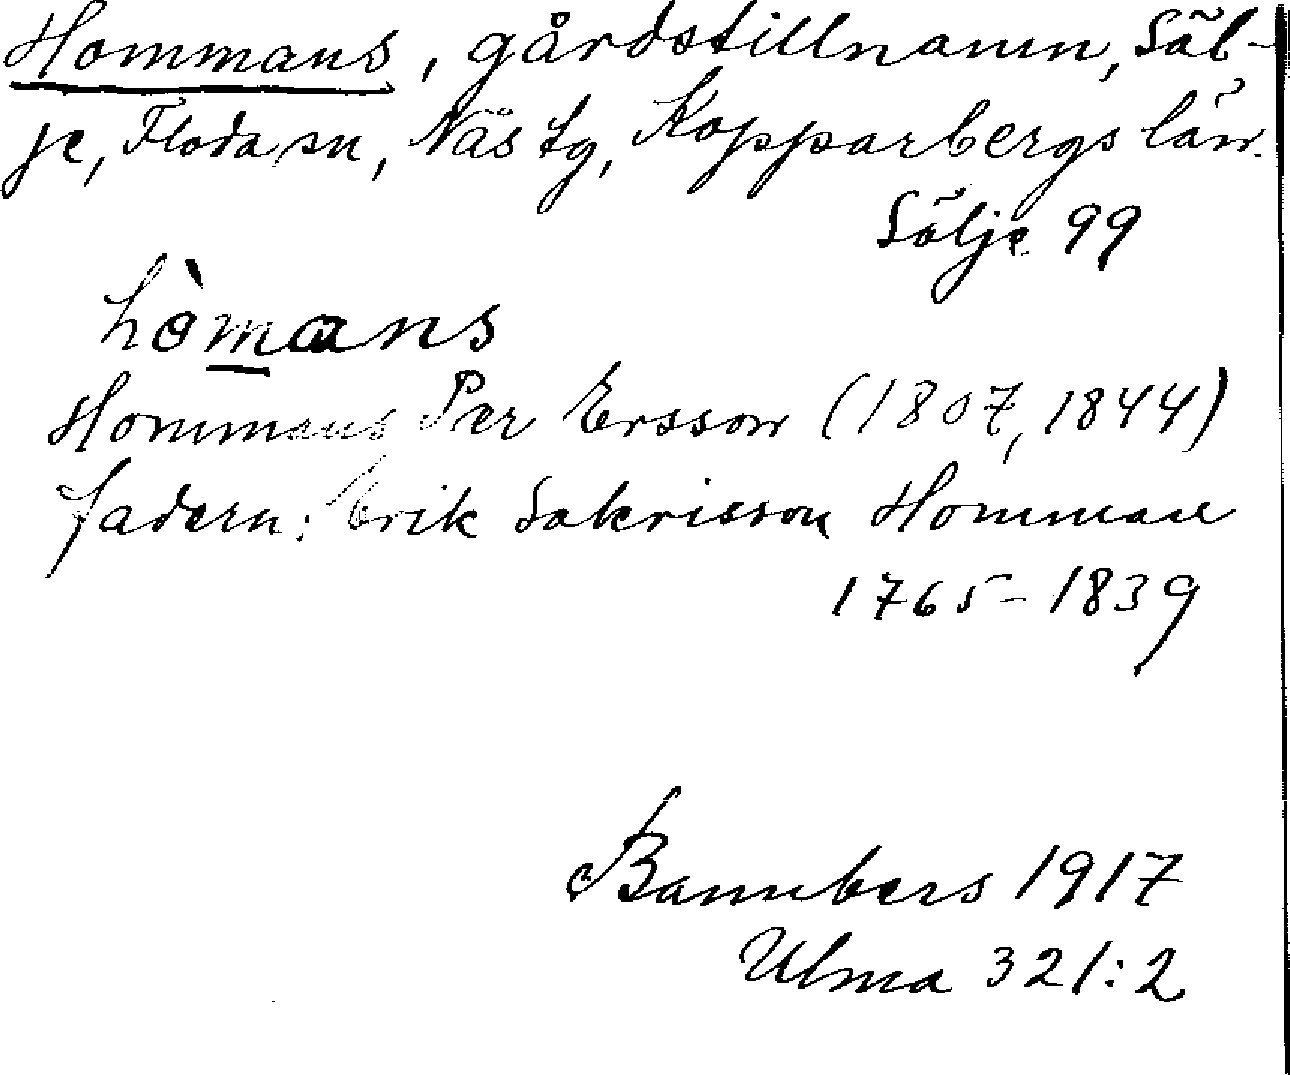 Hommans, gårdstillnamn, Säl-
je, Floda sn, Näs tg, Kopparbergs län.
Sälje 99
hòmans
Hommans Per Ersson (1807, 1844)
fadern: Erik Sakrisson Homman
1765-1839
Bannbers 1917
Ulma 321:2